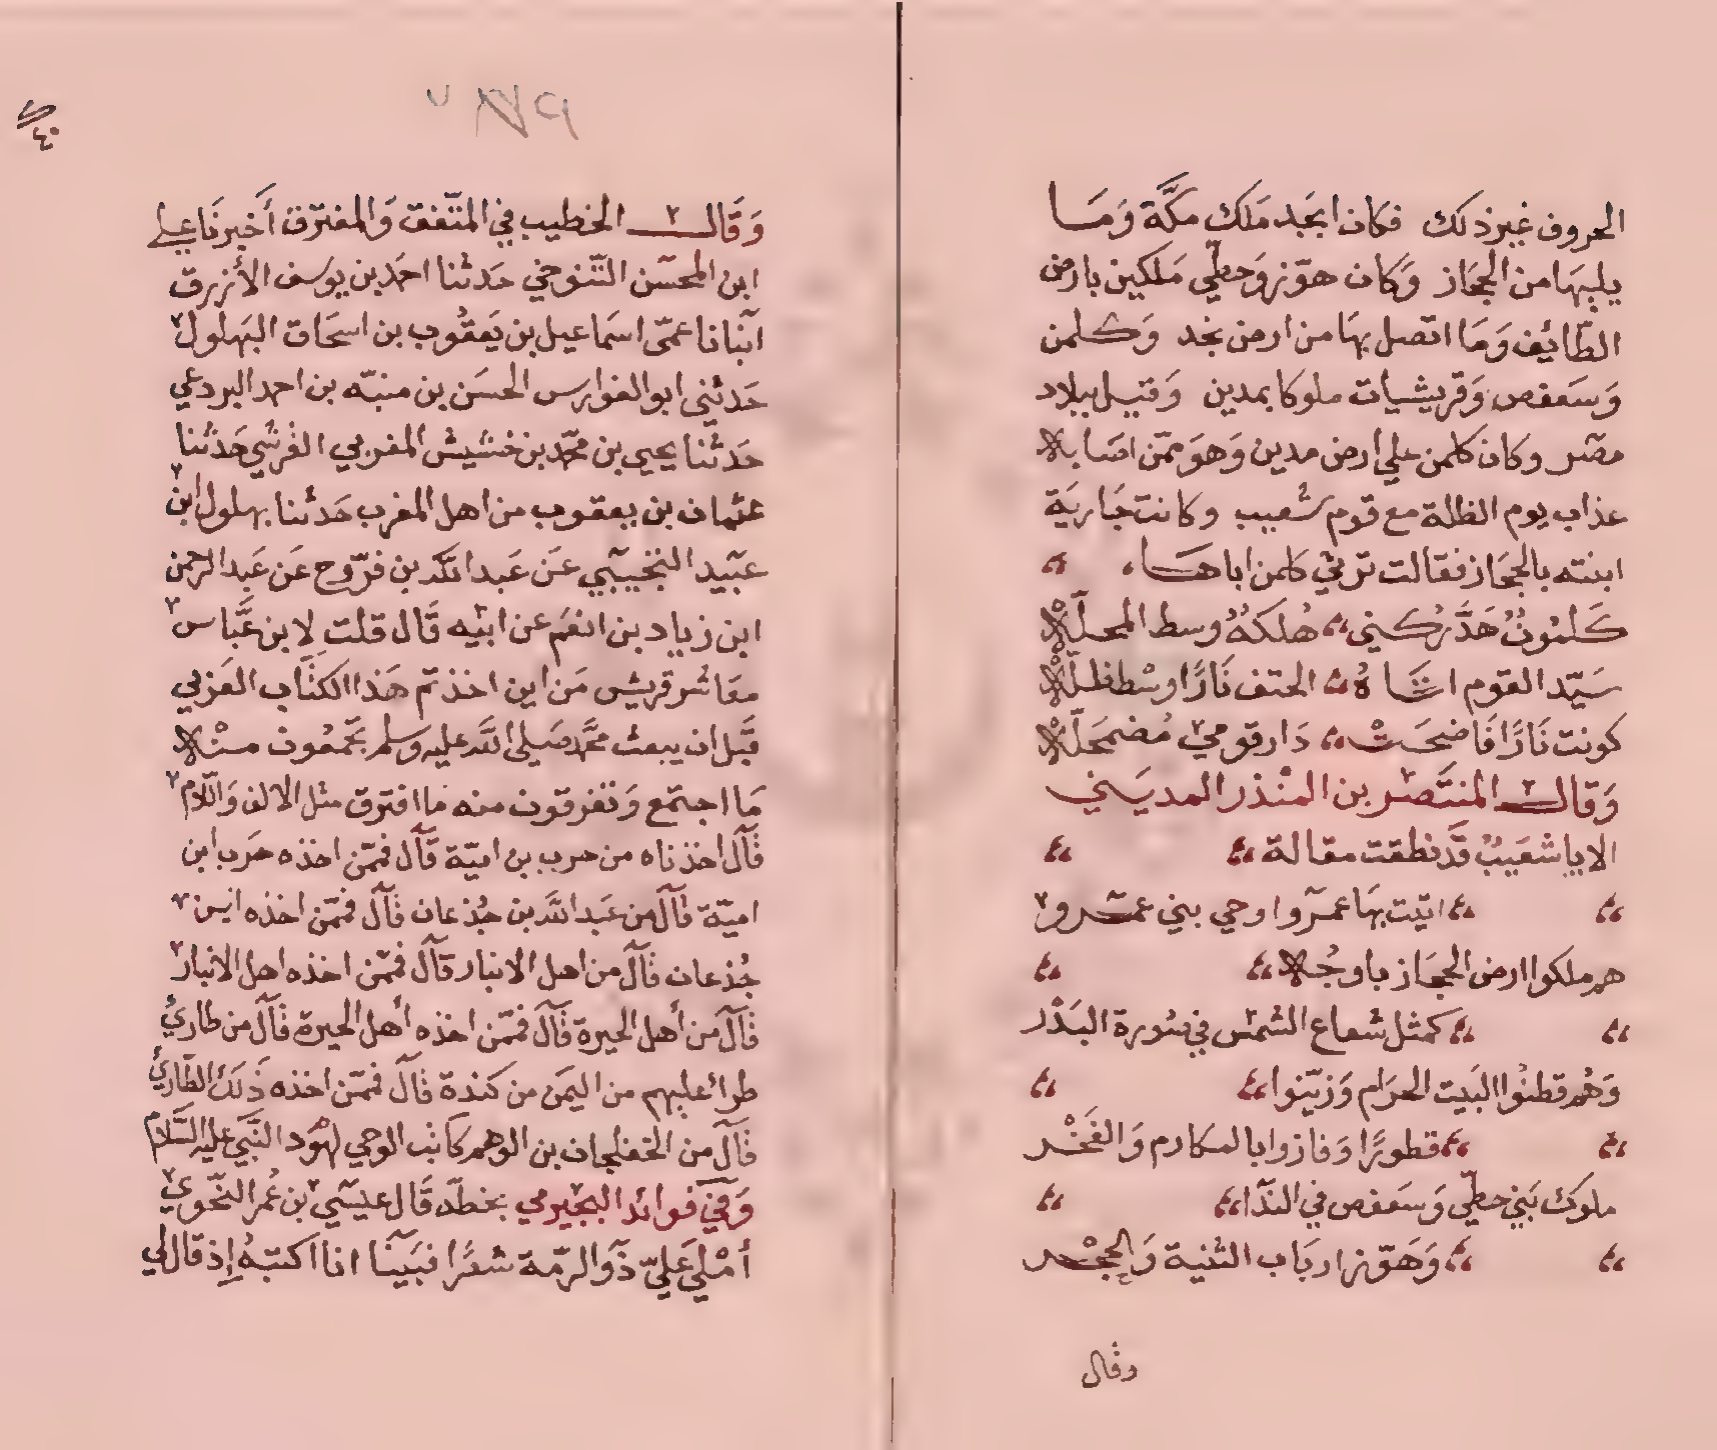 الحروف غير ذلك فكان ابجد ملك مكّة وَمَا
يليهَا من الحجَاز وَكَان هوّز وَحطّي مَلكين بارض
الطّائِف وَمَا اتصل بهَا من ارض نجد وَكلمن
وَسَعفص وَقريشيات ملوكا بمدين وَقيل ببلاد
مصر وكان كلمن علي ارض مدين وَهوَ ممّن اصَابه
عذاب يوم الظلة مع قوم شُعيب وكانت جَاريَة
ابنته بالحجَاز فقالت ترثي كلمن اباهَا
كَلمُونُ هَدَّ رُكني هُلكهُ وسط المحلّه
سَيّد القوم اتَاهُ الحتف نَارًا وسْط ظلّه
كونت نَارًا فَاضحَتْ دَار قومي مُضمَحلّه
وَقال المنتَصر بن المنْذر المديَني
الا يا شعَيبُ قَد نطقت مقالة
اتيت بهَا عمرًوا وحي بني عمرو
هم ملكوا ارض الحجَاز باوجُه
كمثل شعاع الشمس في صُورة البَدْر
وَهُم قطنُوا البَيت الحرَام وَزيّنوا
قطورًا وَفازوا بالمكارم وَالفَخْر
ملوك بَني حطّي وَسَعفص في النّدَا
وَهَوّز ارباب الثنية وَالحِجْر
وقال
٤٠
وَقَال الخطيب في المتّفق وَالمفترق أَخبرنَا علي
ابن المحسّن التّنوخي حَدثنا احمَد بن يوسف الأزرق
انبَانا عمّى اسمَاعيل بن يَعقُوب بن اسحَاق البهلول
حَدثني ابو الفوارس الحسَن بن منبّه بن احمد البردعي
حَدثنا يحيى بن محمّد بن خشيش المغربي القرشي حَدثنا
عثمان بن يعقوب من اهل المغرب حَدثنا بهلول ابن
عبَيد التجيبي عَن عَبد اللّه بن فرّوخ عَن عَبد الرحمن
ابن زياد بن انعَم عن ابيه قَال قلت لابن عَبّاس
معَاشر قريش مَن اين اخذتم هَذا الكتَاب العَربي
قَبل ان يبعث محمّد صَلي اللّه عليه وسلم تجمعُون منْه
مَا اجتمَع وَتفرقون منه ما افترق مثل الالف وَاللّام
قَال اخذناه من حرب بن اميّة قَال فممّن اخذه حَرب ابن
اميّة قَال من عَبد اللّه بن جُذعان قَال فممّن اخذه ابن
جُذعان قَال من اهل الانبار قَال فممّن اخذه اهل الانبار
قَال من أهل الحيرة قَال فممّن اخذه أهل الحيرة قَال من طاريٍ
طرا عليهم من اليمَن من كندة قَال فممّن اخذه ذَلك الطّاريُ
قَال من الخفلجان بن الوهم كاتب الوحي لهوُد النَّبي عليه السَّلام
وَفي فوائد النجيرمي بخطّه قَال عيسَي بن عُمر النّحوي
أمْلي عَليّ ذو الرّمة شعرًا فبَينَا انا اكتبهُ إِذ قال لي